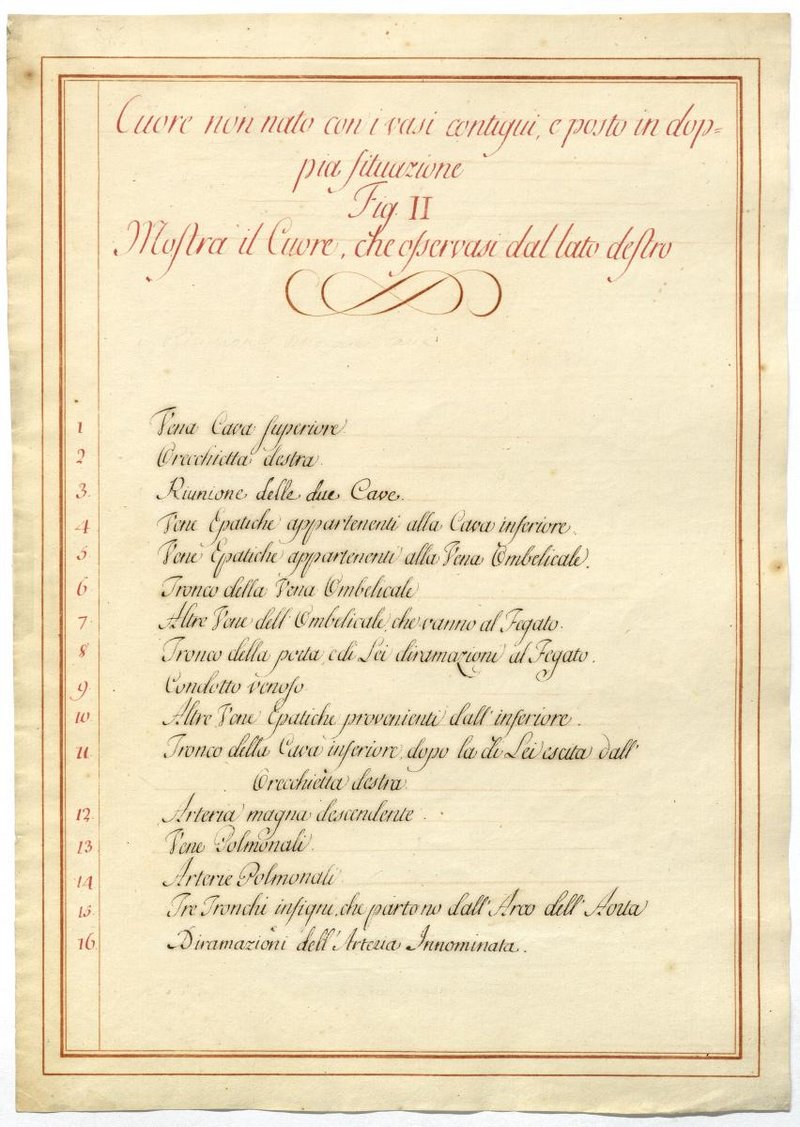 Cuore non nato con i vasi contigui, e posto in dop=
pia situazione
Fig. II
Mostra il Cuore, che osservasi dal lato destro
1 Vena Cava superiore
2 Orecchietta destra.
3. Riunione delle due Cave.
4 Vene Epatiche appartenenti alla Cava inferiore.
5. Vene Epatiche appartenenti alla Vena Ombelicale.
6 Tronco della Vena Ombelicale
7 Altre Vene dell'Ombelicale, che vanno al Fegato.
8 Tronco della porta, e di Lei diramazioni al Fegato.
9 Condotto venoso
10 Altre Vene Epatiche provenienti dall'inferiore.
11 Tronco della Cava inferiore, dopo la di Lei escita dall'
Orecchietta destra
12 Arteria magna descendente.
13 Vene Polmonali.
14 Arterie Polmonali
15 Tre Tronchi insigni, che partono dall'Arco dell'Aorta
16 Diramazioni dell'Arteria Innominata.